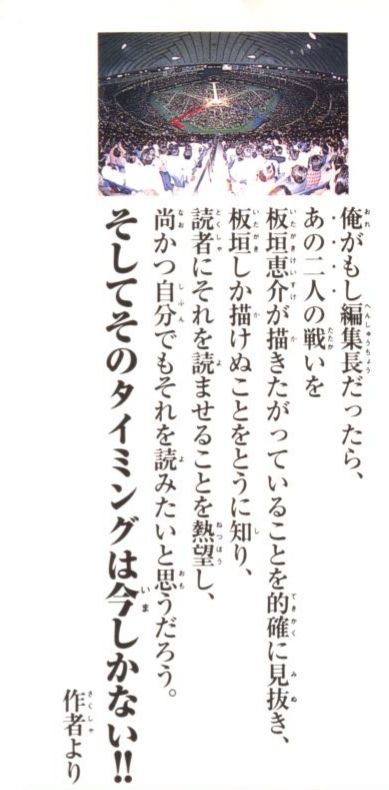 俺がもし編集長だったら、
あの二人の戦いを
板垣恵介が描きたがっていることを的確に見抜き、
板垣しか描けぬことをとうに知り、
読者にそれを読ませることを熱望し、
尚かつ自分でもそれを読みたいと思うだろう。
そしてそのタイミングは今しかない!!
作者より